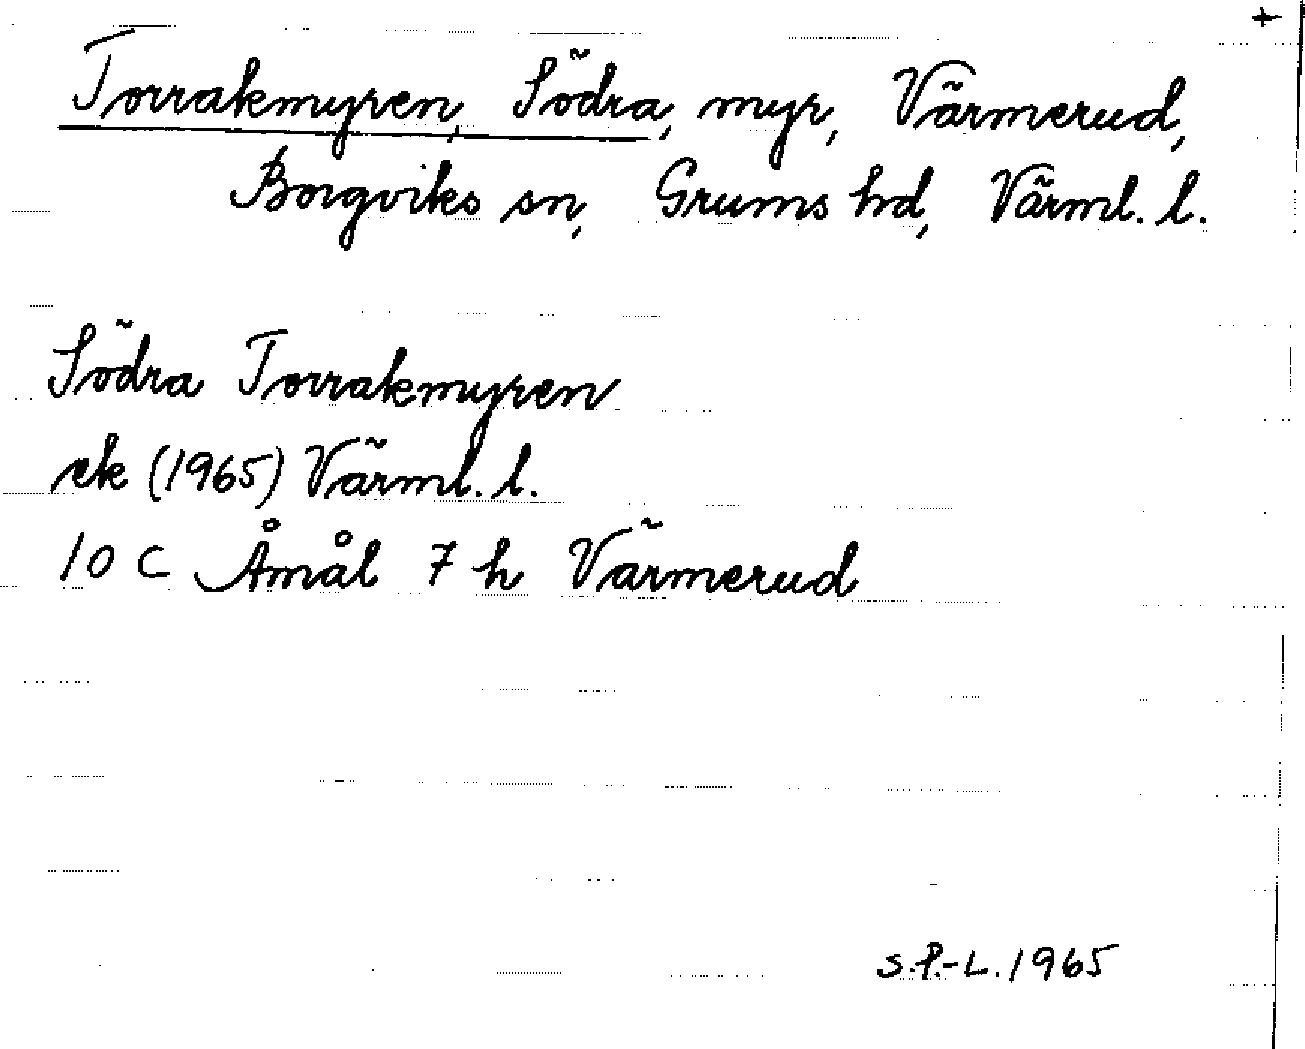 +
Torrakmyren, Södra, myr, Värmerud,
Borgviks sn, Grums hd, Värml. l.
Södra Torrakmyren
ek (1965) Värml. l.
10 C Åmål 7 h Värmerud
S.P.-L. 1965